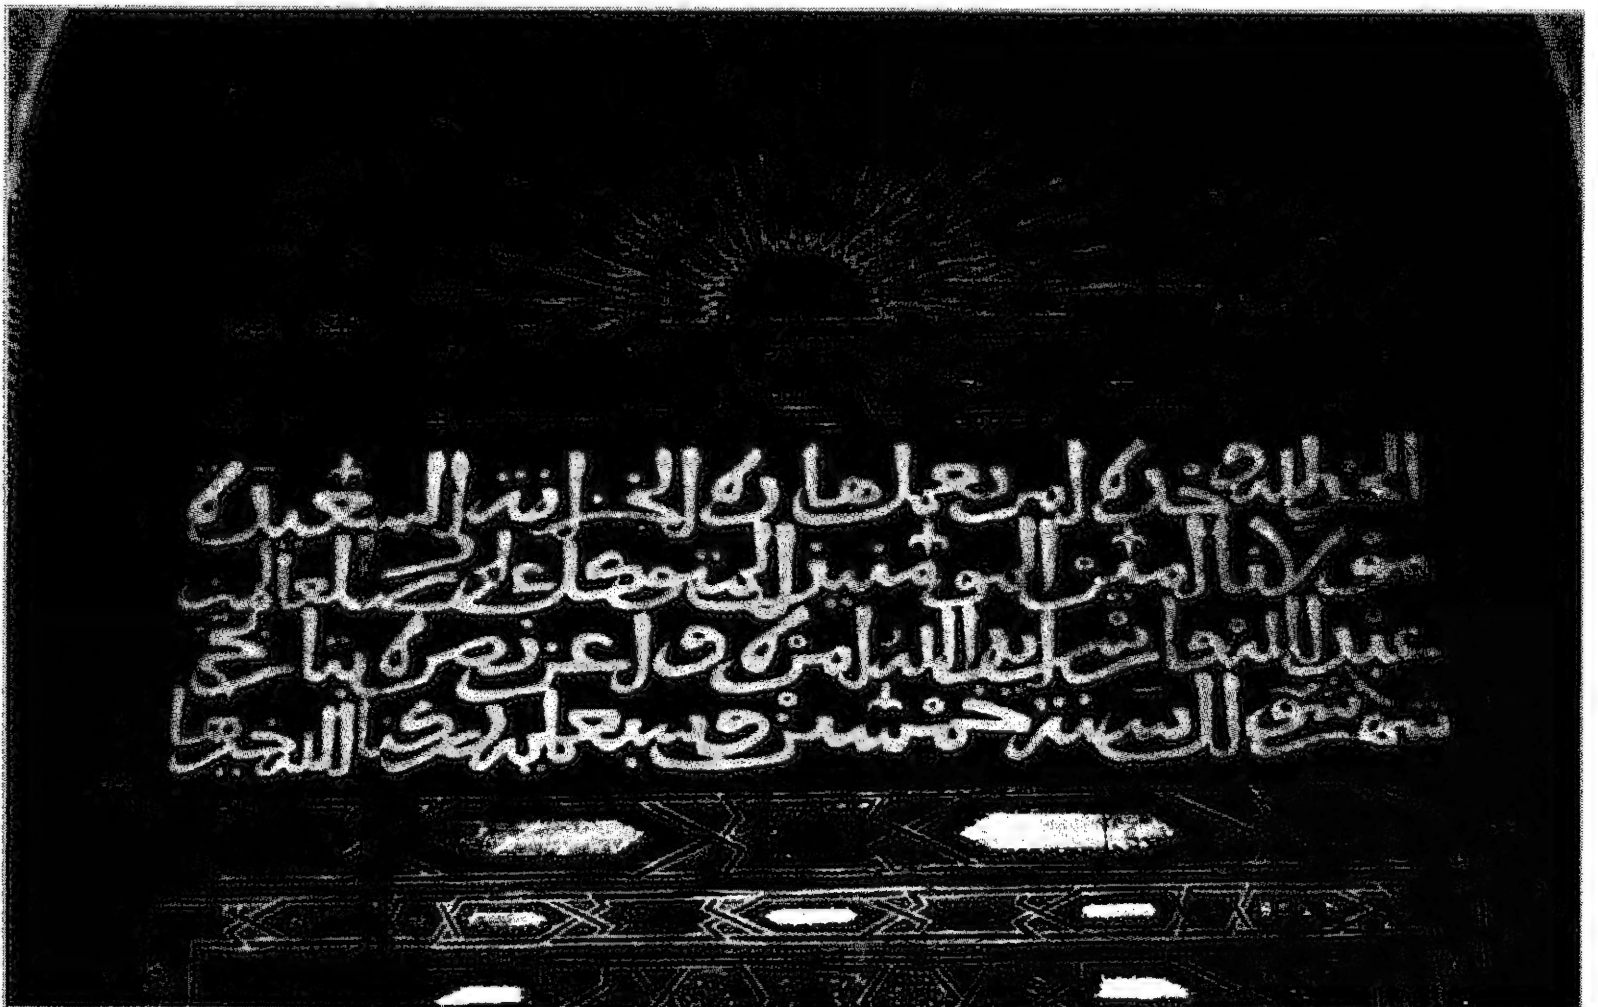 الحمد لله وحده امر بعمل هاذه الخزانة السعيدة
مولانا امير المؤمنين المتوكل على رب العالمين
عبد الله فارس ايد الله امره واعز نصره بتاريخ
شهر شوال سنة خمسين وسبعمايه رزقنا الله خيرها